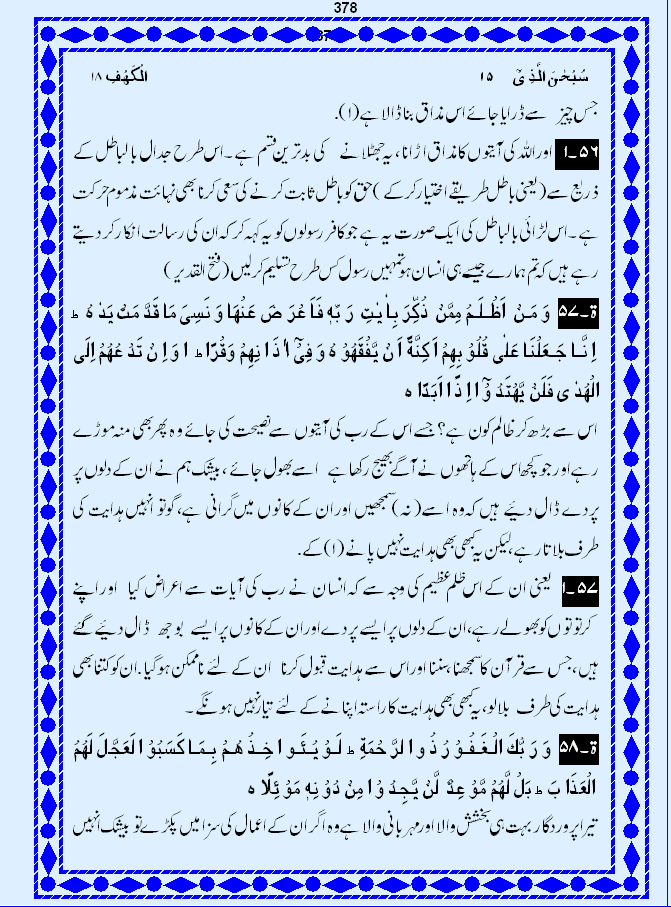 378
سُبْحٰنَ الَّذِیْۤ ۱۵
الْکَهْف ۱۸
جس چیز سے ڈرایا جائے اس مذاق بنا ڈالا ہے (۱).
۵۶۔۱ اور اللہ کی آیتوں کا مذاق اڑانا، یہ جھٹلانے کی بدترین قسم ہے۔ اس طرح جدال بالباطل کے
ذریعے سے (یعنی باطل طریقے اختیار کر کے) حق کو باطل ثابت کرنے کی سعی کرنا بھی نہائت مذموم حرکت
ہے۔ اس لڑائی بالباطل کی ایک صورت یہ ہے جو کافر رسولوں کو یہ کہہ کر کہ ان کی رسالت انکار کر دیتے
رہے ہیں کہ تم ہمارے جیسے ہی انسان ہو تمہیں رسول کس طرح تسلیم کرلیں (فتح القدیر)
ۃ۔۵۷ وَ مَنْ اَظْلَمُ مِمَّنْ ذُکِّرَ بِاٰیٰتِ رَبِّهٖ فَاَعْرَضَ عَنْهَا وَ نَسِیَ مَا قَدَّمَتْ یَدٰهُ ط
اِنَّا جَعَلْنَا عَلٰی قُلُوْبِهِمْ اَکِنَّةً اَنْ یَّفْقَهُوْهُ وَ فِیْۤ اٰذَانِهِمْ وَقْرًا ط اوَ اِنْ تَدْعُهُمْ اِلَی
الْهُدٰی فَلَنْ یَّهْتَدُوْۤا اِذًا اَبَدًا ہ
اس سے بڑھ کر ظالم کون ہے؟ جسے اس کے رب کی آیتوں سے نصیحت کی جائے وہ پھر بھی منہ موڑے
رہے اور جو کچھ اس کے ہاتھوں نے آگے بھیج رکھا ہے اسے بھول جائے، بیشک ہم نے ان کے دلوں پر
پردے ڈال دیئے ہیں کہ وہ اسے (نہ) سمجھیں اور ان کے کانوں میں گرانی ہے، گو تو انہیں ہدایت کی
طرف بلاتا رہے، لیکن یہ کبھی بھی ہدایت نہیں پانے (۱) کے.
۵۷۔۱ یعنی ان کے اس ظلم عظیم کی وجہ سے کہ انسان نے رب کی آیات سے اعراض کیا اور اپنے
کرتوتوں کو بھولے رہے، ان کے دلوں پر ایسے پردے اور ان کے کانوں پر ایسے بوجھ ڈال دیئے گئے
ہیں، جس سے قرآن کا سمجھنا، سننا اور اس سے ہدایت قبول کرنا ان کے لئے ناممکن ہوگیا. ان کو کتنا بھی
ہدایت کی طرف بلالو، یہ کبھی بھی ہدایت کا راستہ اپنانے کے لئے تیار نہیں ہونگے۔
ۃ۔۵۸ وَ رَبُّکَ الْغَفُوْرُ ذُو الرَّحْمَةِ ط لَوْ یُئَوا خِذُ هُمْ بِمَا کَسَبُوْا لَعَجَّلَ لَهُمُ
الْعَذَابَ ط بَلْ لَّهُمْ مَّوْعِدٌ لَّنْ یَّجِدُوْا مِنْ دُوْنِهٖ مَوْئِلًا ہ
تیرا پروردگار بہت ہی بخشش والا اور مہربانی والا ہے وہ اگر ان کے اعمال کی سزا میں پکڑے تو بیشک انہیں